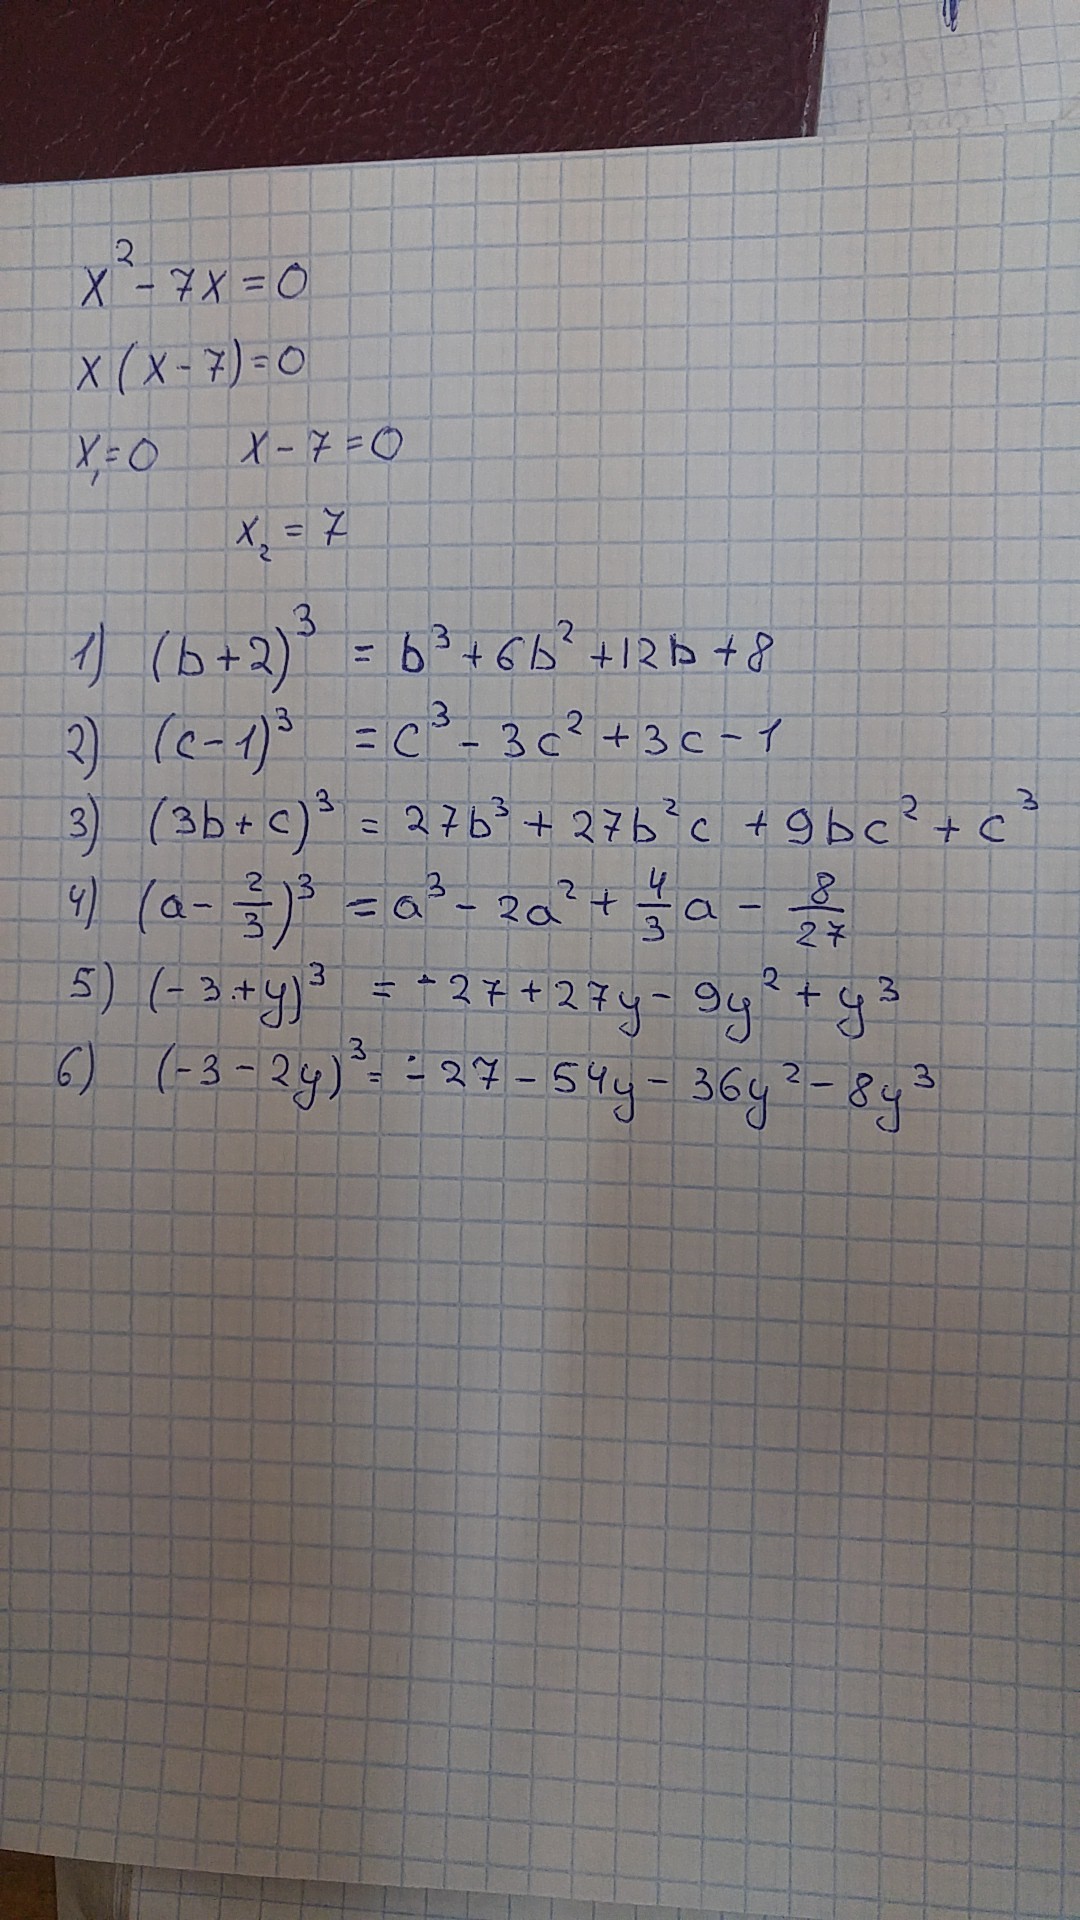 x² - 7x = 0
x(x - 7) = 0
x₁ = 0    x - 7 = 0
x₂ = 7
1) (b+2)³ = b³ + 6b² + 12b + 8
2) (c-1)³ = c³ - 3c² + 3c - 1
3) (3b+c)³ = 27b³ + 27b²c + 9bc² + c³
4) (a - 2/3)³ = a³ - 2a² + 4/3 a - 8/27
5) (-3+y)³ = -27 + 27y - 9y² + y³
6) (-3-2y)³ = -27 - 54y - 36y² - 8y³